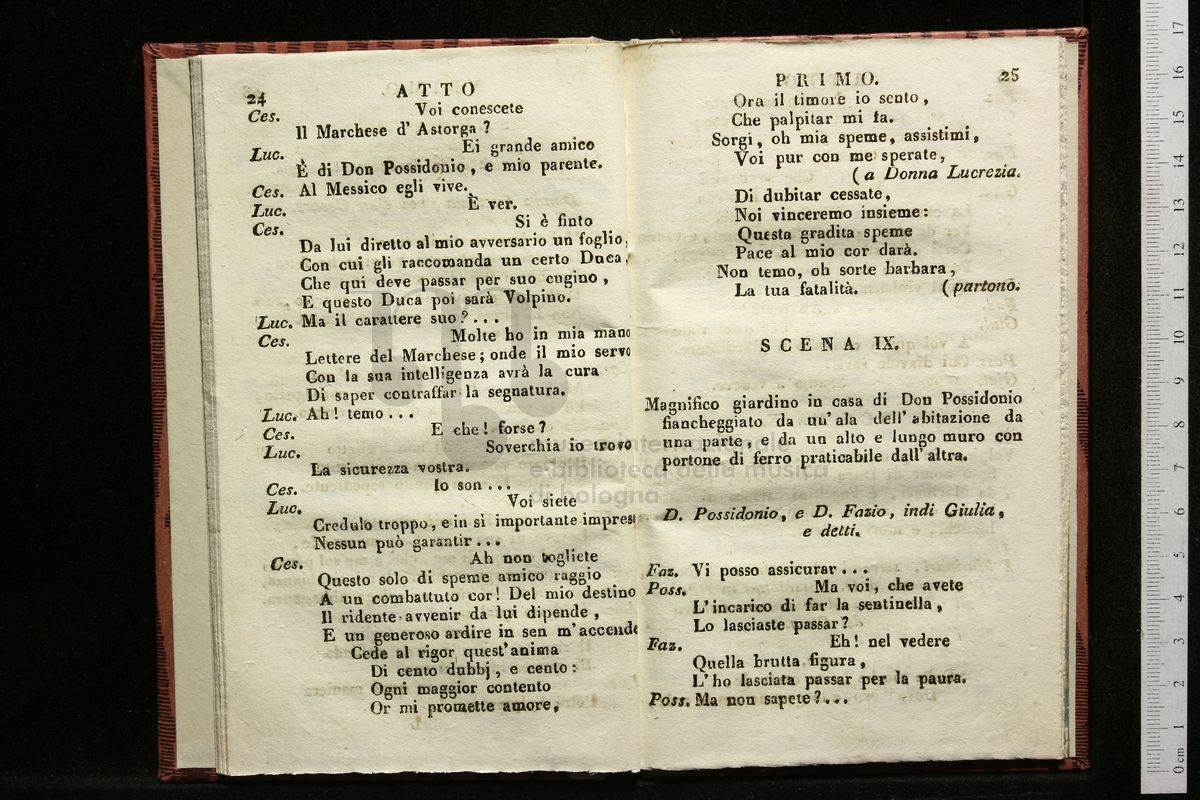 24
ATTO
Ces. Voi conescete
Il Marchese d' Astorga ?
Luc. Ei grande amico
È di Don Possidonio, e mio parente.
Ces. Al Messico egli vive.
Luc. È ver.
Ces. Si è finto
Da lui diretto al mio avversario un foglio,
Con cui gli raccomanda un certo Duca,
Che qui deve passar per suo cugino,
E questo Duca poi sarà Volpino.
Luc. Ma il carattere suo ? ...
Ces. Molte ho in mia mano
Lettere del Marchese; onde il mio servo
Con la sua intelligenza avrà la cura
Di saper contraffar la segnatura.
Luc. Ah! temo ...
Ces. E che! forse ?
Luc. Soverchia io trovo
La sicurezza vostra.
Ces. Io son ...
Luc. Voi siete
Credulo troppo, e in sì importante impresa
Nessun può garantir ...
Ces. Ah non togliete
Questo solo di speme amico raggio
A un combattuto cor! Del mio destino
Il ridente avvenir da lui dipende,
E un generoso ardire in sen m'accende
Cede al rigor quest'anima
Di cento dubbj, e cento:
Ogni maggior contento
Or mi promette amore,
PRIMO.
25
Ora il timore io sento,
Che palpitar mi fa.
Sorgi, oh mia speme, assistimi,
Voi pur con me sperate,
( a Donna Lucrezia.
Di dubitar cessate,
Noi vinceremo insieme:
Questa gradita speme
Pace al mio cor darà.
Non temo, oh sorte barbara,
La tua fatalità. ( partono.
SCENA IX.
Magnifico giardino in casa di Don Possidonio
fiancheggiato da un'ala dell' abitazione da
una parte, e da un alto e lungo muro con
portone di ferro praticabile dall' altra.
D. Possidonio, e D. Fazio, indi Giulia,
e detti.
Faz. Vi posso assicurar ...
Poss. Ma voi, che avete
L'incarico di far la sentinella,
Lo lasciaste passar ?
Faz. Eh! nel vedere
Quella brutta figura,
L'ho lasciata passar per la paura.
Poss. Ma non sapete ? ...
0 cm 1 2 3 4 5 6 7 8 9 10 11 12 13 14 15 16 17